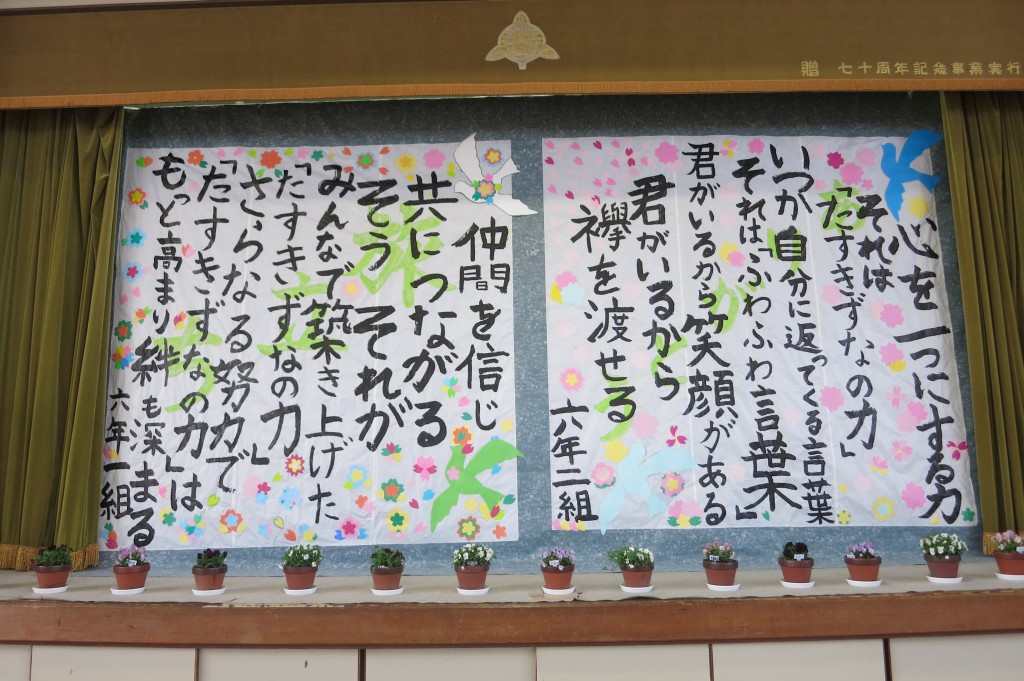 贈 七十周年記念事業実行
心を一つにする力
それは
「たすきずなの力」
いつか自分に返ってくる言葉
それは「ふわふわ言葉」
君がいるから笑顔がある
君がいるから
襷を渡せる
六年二組
仲間を信じ
共につながる
そう それが
みんなで築き上げた
「たすきずなの力」
さらなる努力で
「たすきずなの力」は
もっと高まり絆も深まる
六年一組
旅立ち